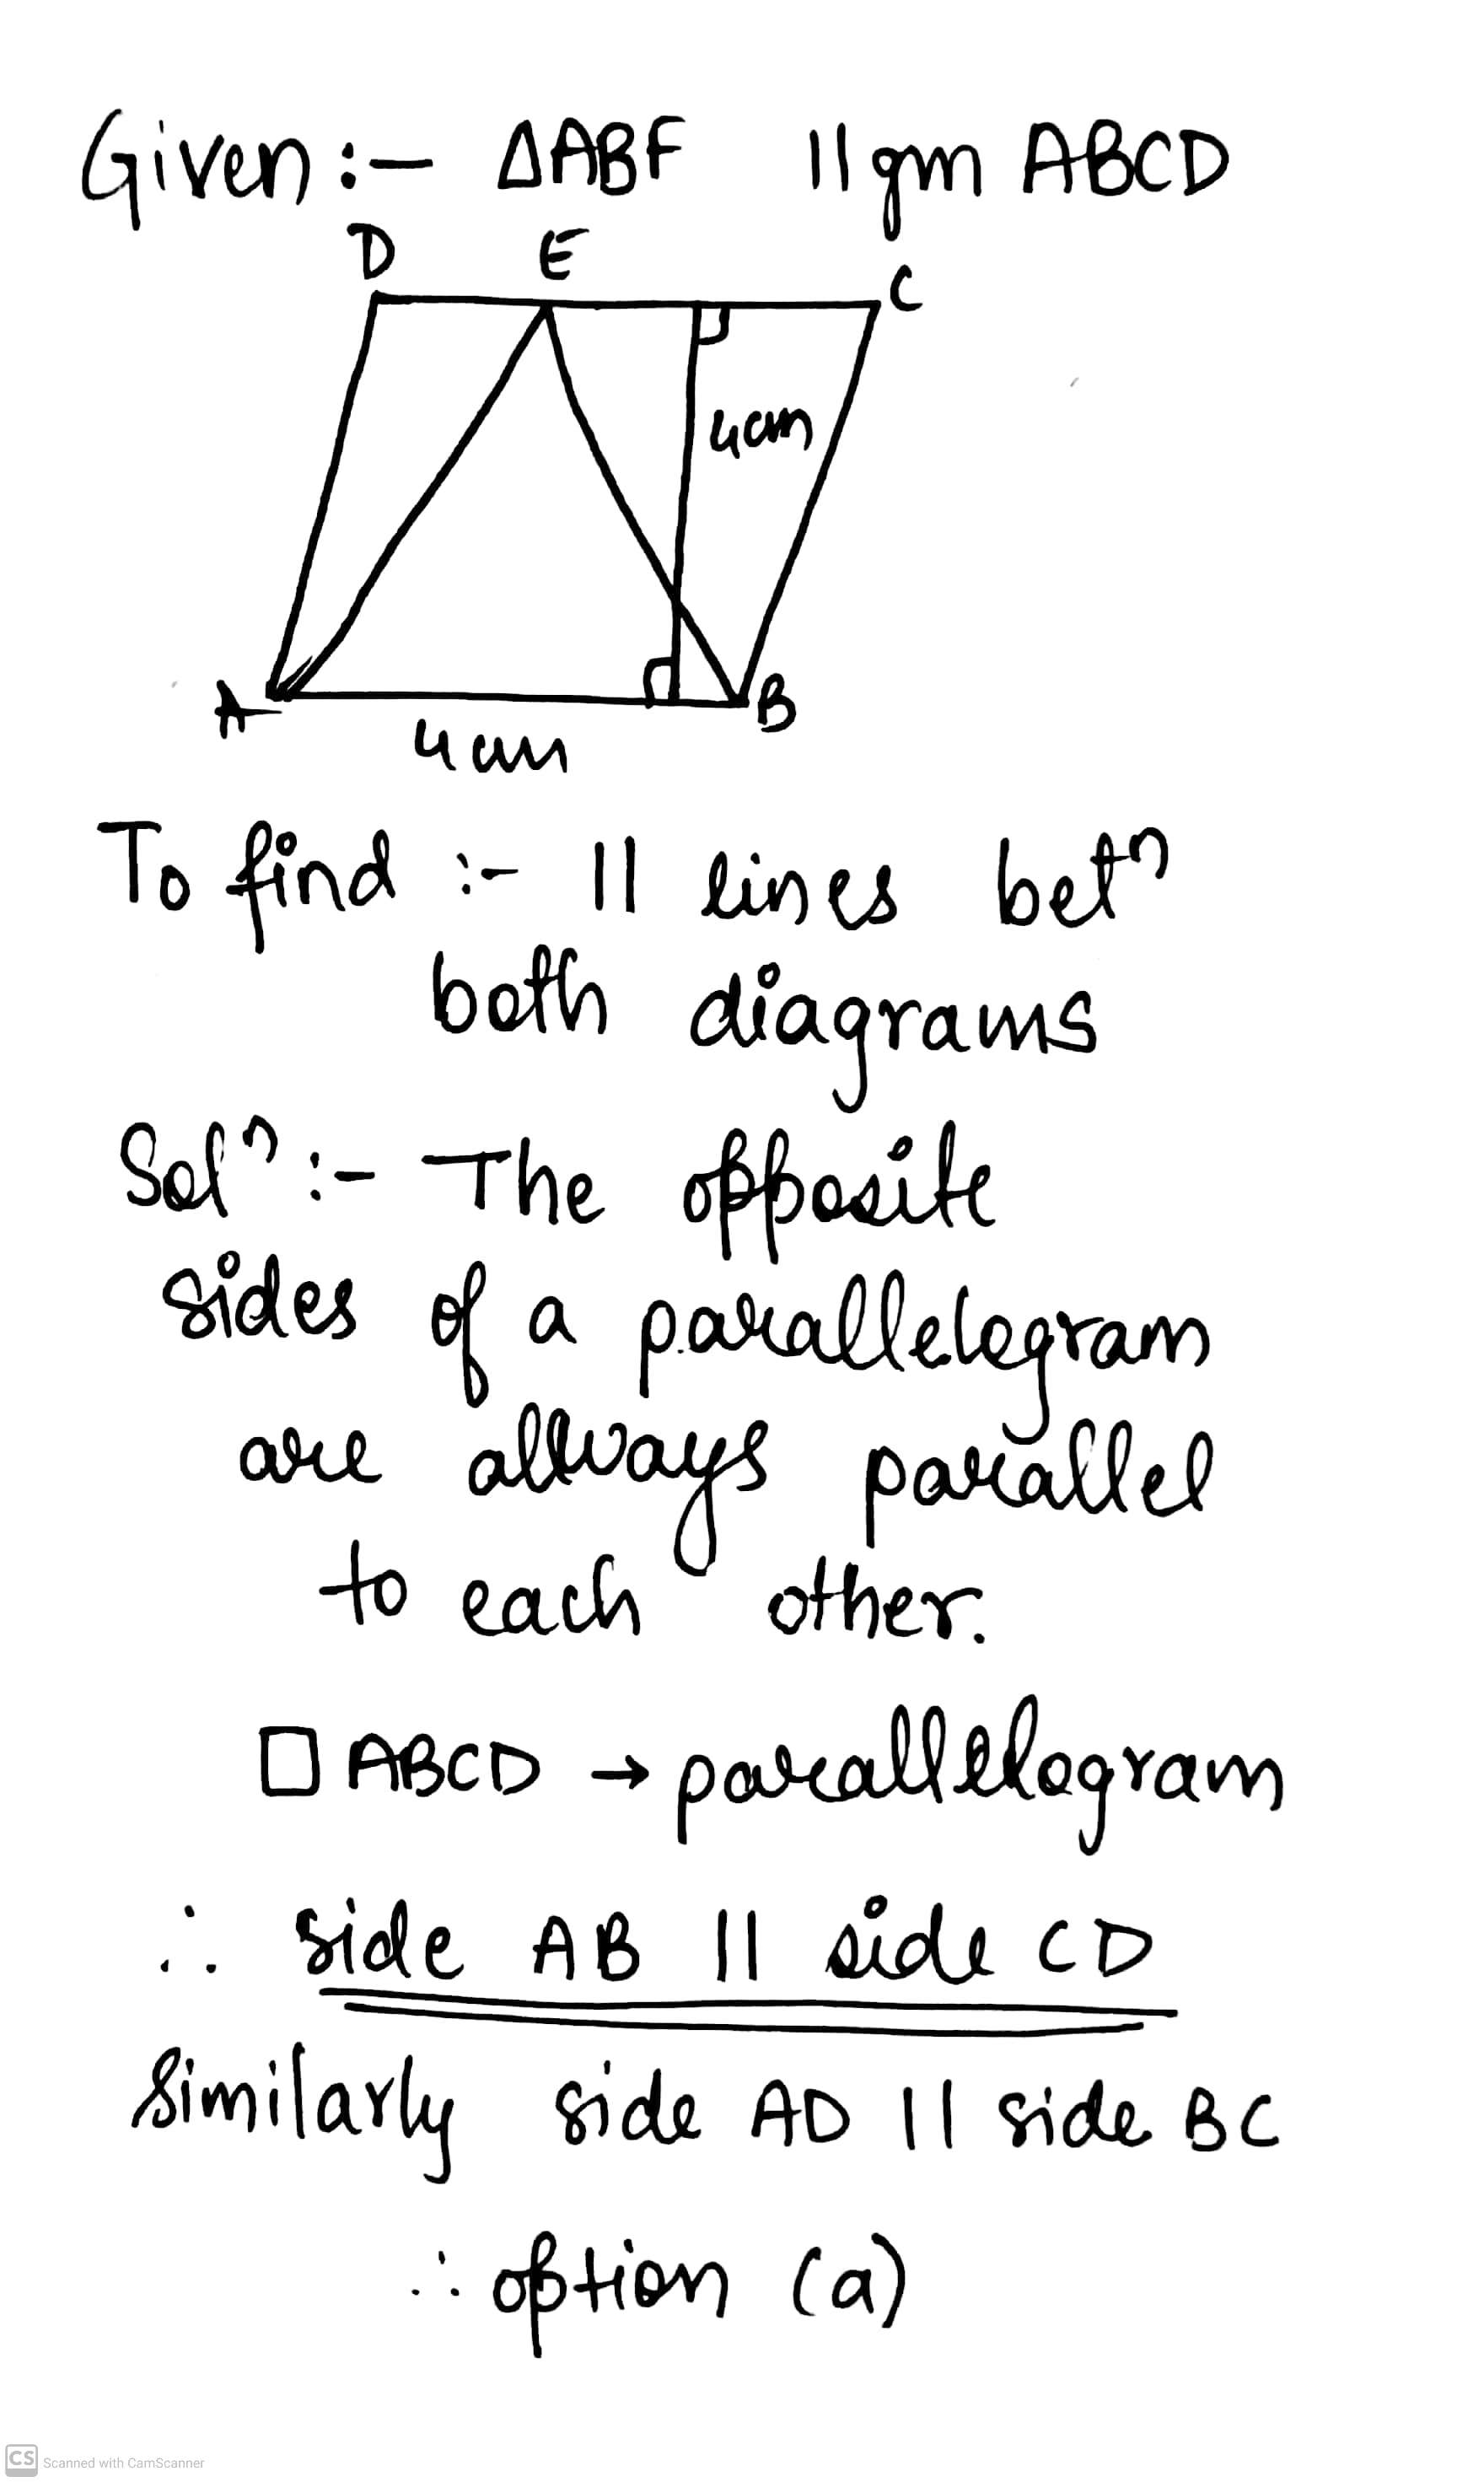 Given :- ΔABF ||gm ABCD
D E C
4cm
A B
4cm
To find :- || lines betⁿ
both diagrams
Solⁿ :- The opposite
sides of a parallelegram
are allways parallel
to each other.
□ ABCD → parallelogram
∴ side AB || side CD
Similarly side AD || side BC
∴ option (a)
CS Scanned with CamScanner